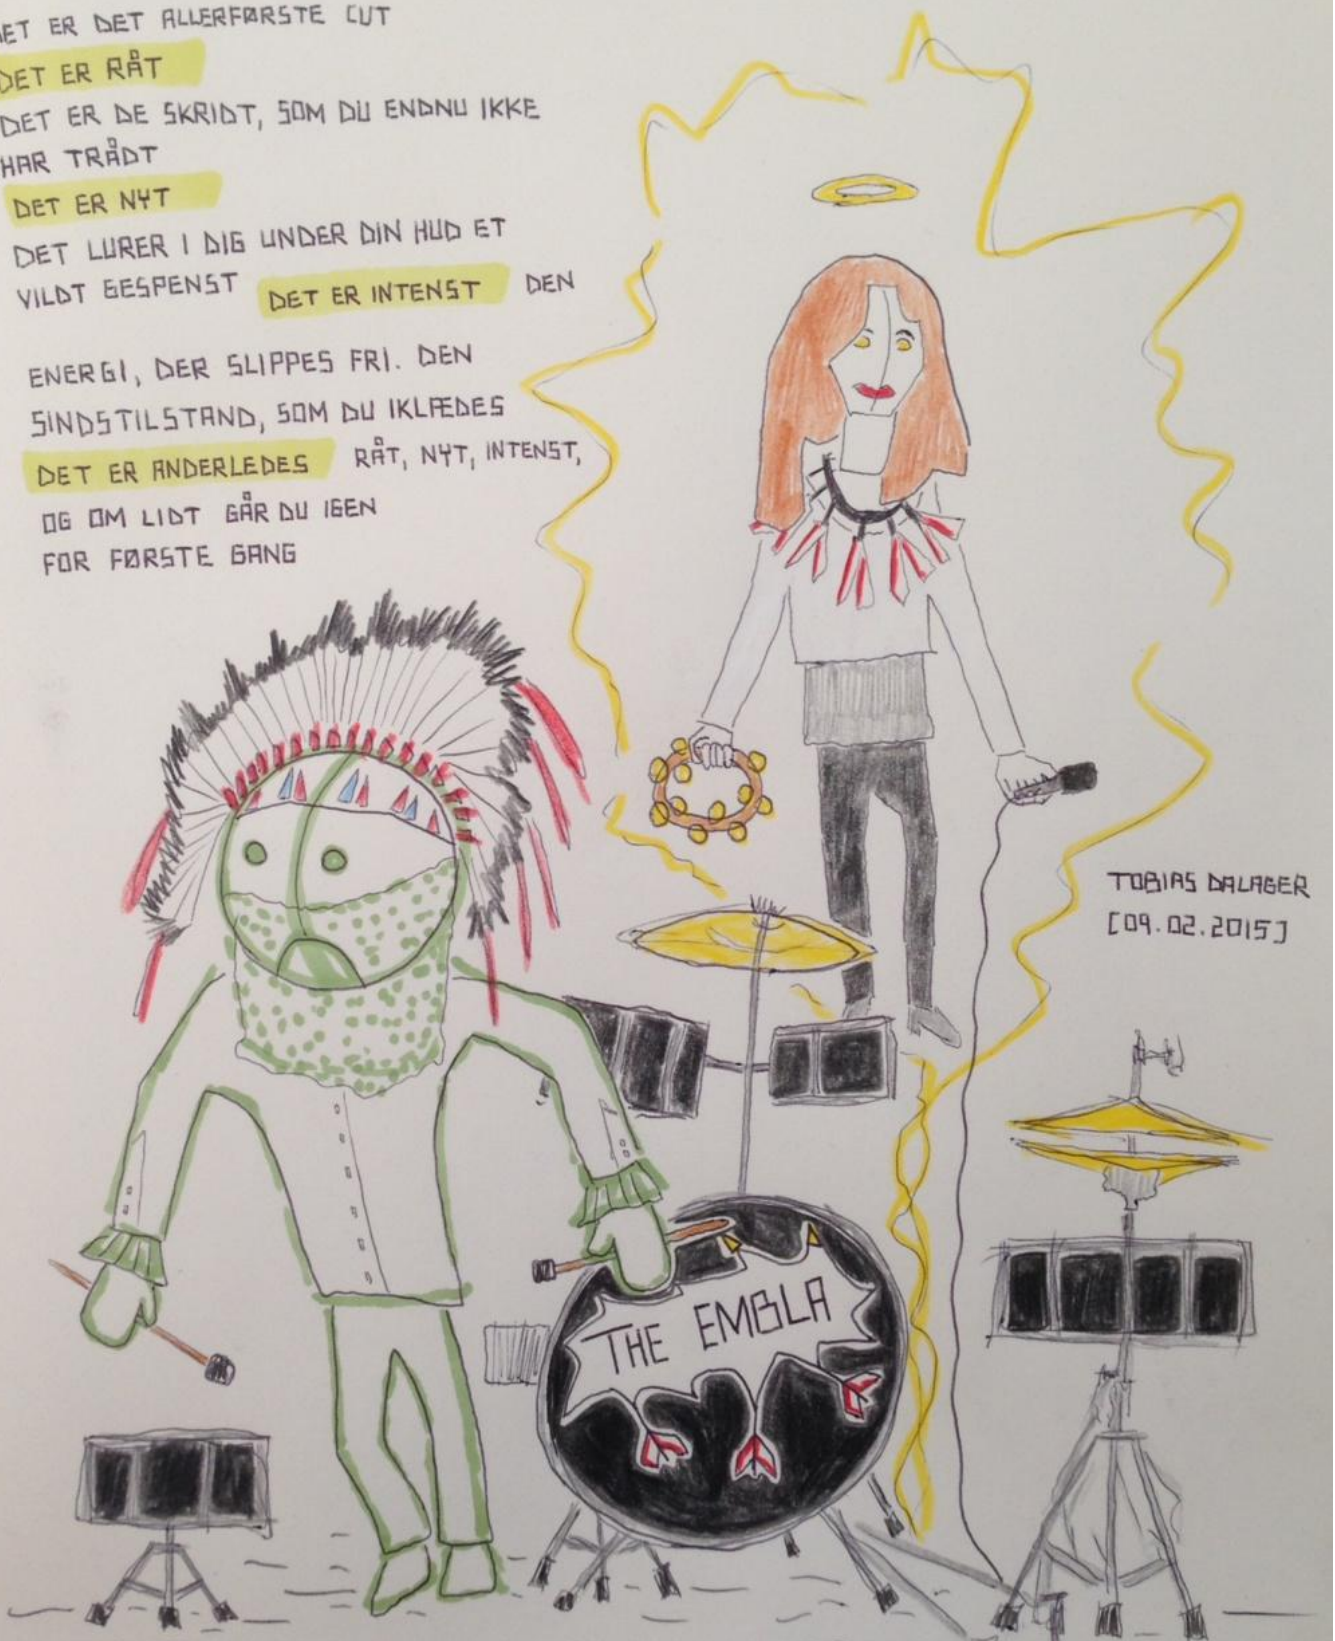 DET ER DET ALLERFØRSTE CUT
DET ER RÅT
DET ER DE SKRIDT, SOM DU ENDNU IKKE
HAR TRÅDT
DET ER NYT
DET LURER I DIG UNDER DIN HUD ET
VILDT GESPENST DET ER INTENST DEN
ENERGI, DER SLIPPES FRI. DEN
SINDSTILSTAND, SOM DU IKLÆDES
DET ER ANDERLEDES RÅT, NYT, INTENST,
OG OM LIDT GÅR DU IGEN
FOR FØRSTE GANG
TOBIAS DALAGER
[09.02.2015]
THE EMBLA